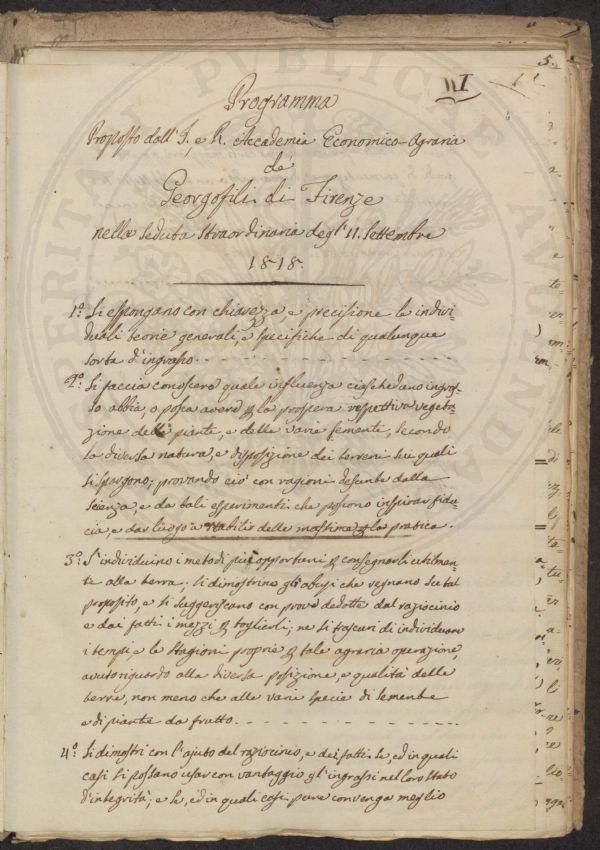 5.
III
Programma
Proposto dall' I. e R. Accademia Economico-Agraria
de'
Georgofili di Firenze
nella Seduta Straordinaria degl' 11. Settembre
1818.
1.º Si espongano con chiarezza, e precisione le indivi-
duali teorie generali, e specifiche di qualunque
sorta d'ingrasso.
2.º Si faccia conoscere quale influenza ciascheduno ingras-
so abbia, o possa avere per la prospera respettiva vegeta-
zione delle piante, e delle varie semente, secondo
la diversa natura, e disposizione dei terreni sui quali
si spargono; provando ciò con ragioni desunte dalla
scienza, e da tali esperimenti che possono inspirar fidu-
cia, e dar luogo a stabilir delle massime per la pratica.
3.º S'individuino i metodi più opportuni per consegnarli utilmen-
te alla terra. Si dimostrino gli abusi che regnano su tal
proposito, e si suggeriscano con prove dedotte dal raziocinio
e dai fatti i mezzi per toglierli; ne si trascuri di individuare
i tempi, e le stagioni proprie per tale agraria operazione,
avuto riguardo alla diversa posizione, e qualità delle
terre, non meno che alle varie specie di semente
e di piante da frutto.
4.º Si dimostri con l'ajuto del raziocinio, e dei fatti se, ed in quali
casi si possano usar con vantaggio gl'ingrassi nel loro stato
d'integrità; e se, ed in quali casi pure convenga meglio